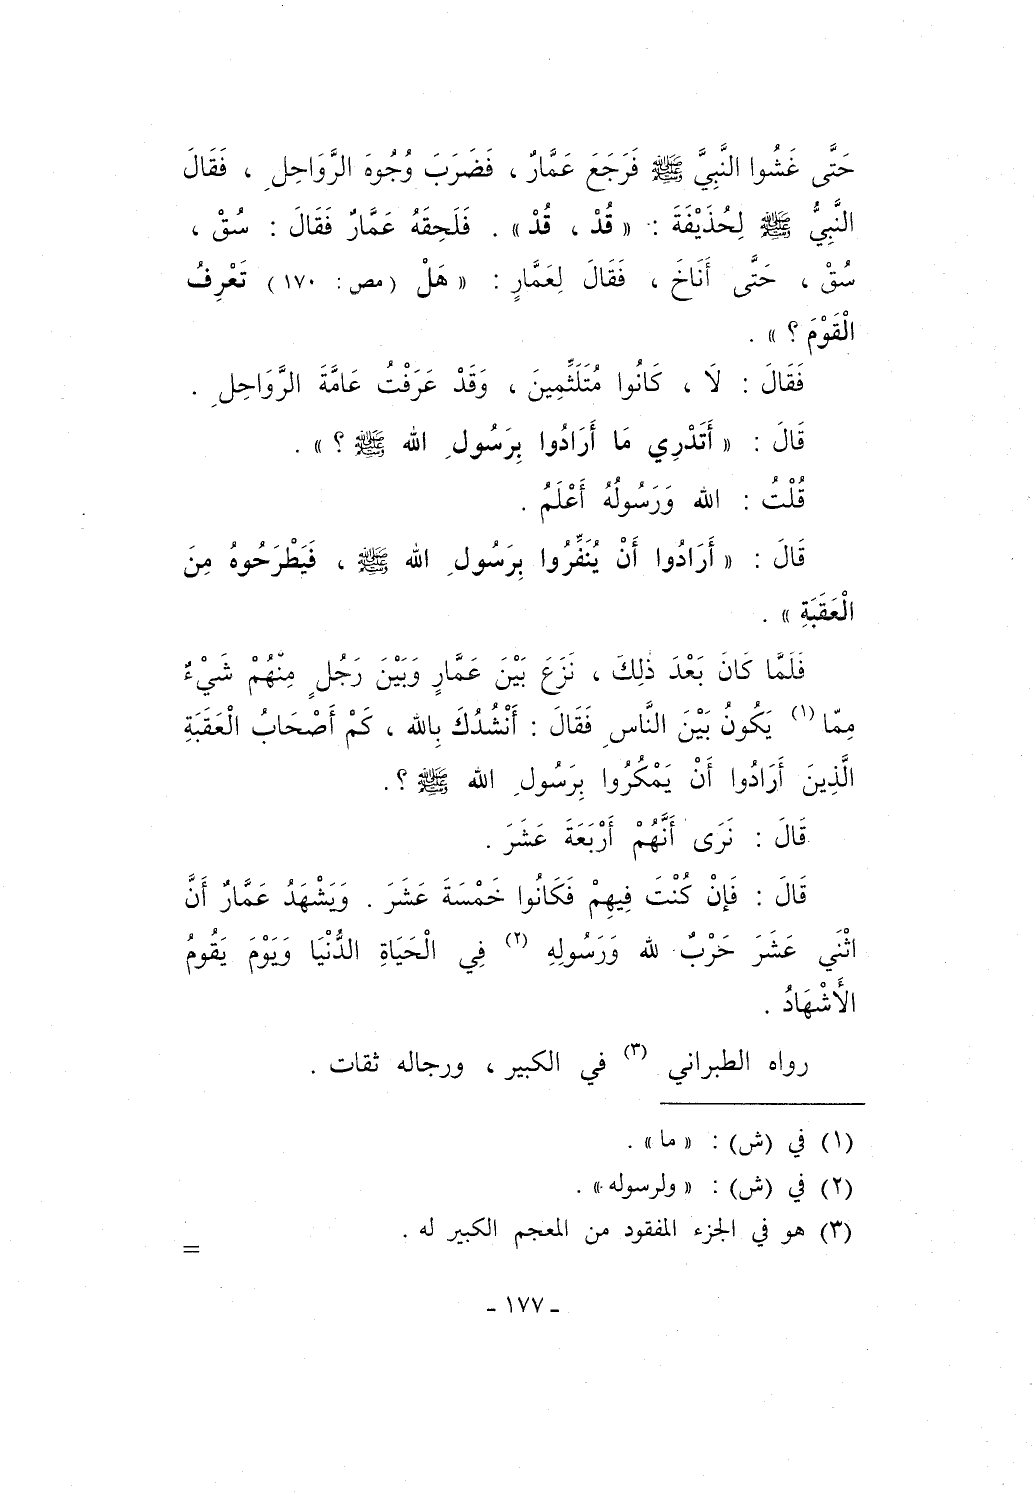 حَتَّى غَشُوا النَّبِيَّ ﷺ فَرَجَعَ عَمَّارٌ ، فَضَرَبَ وُجُوهَ الرَّوَاحِلِ ، فَقَالَ
النَّبِيُّ ﷺ لِحُذَيْفَةَ : « قُدْ ، قُدْ » . فَلَحِقَهُ عَمَّارٌ فَقَالَ : سُقْ ،
سُقْ ، حَتَّى أَنَاخَ ، فَقَالَ لِعَمَّارٍ : « هَلْ ( مص : ١٧٠ ) تَعْرِفُ
الْقَوْمَ ؟ » .
فَقَالَ : لَا ، كَانُوا مُتَلَثِّمِينَ ، وَقَدْ عَرَفْتُ عَامَّةَ الرَّوَاحِلِ .
قَالَ : « أَتَدْرِي مَا أَرَادُوا بِرَسُولِ الله ﷺ ؟ » .
قُلْتُ : الله وَرَسُولُهُ أَعْلَمُ .
قَالَ : « أَرَادُوا أَنْ يُنَفِّرُوا بِرَسُولِ الله ﷺ ، فَيَطْرَحُوهُ مِنَ
الْعَقَبَةِ » .
فَلَمَّا كَانَ بَعْدَ ذٰلِكَ ، نَزَعَ بَيْنَ عَمَّارٍ وَبَيْنَ رَجُلٍ مِنْهُمْ شَيْءٌ
مِمّا (١) يَكُونُ بَيْنَ النَّاسِ فَقَالَ : أَنْشُدُكَ بِالله ، كَمْ أَصْحَابُ الْعَقَبَةِ
الَّذِينَ أَرَادُوا أَنْ يَمْكُرُوا بِرَسُولِ الله ﷺ ؟ .
قَالَ : نَرَى أَنَّهُمْ أَرْبَعَةَ عَشَرَ .
قَالَ : فَإِنْ كُنْتَ فِيهِمْ فَكَانُوا خَمْسَةَ عَشَرَ . وَيَشْهَدُ عَمَّارٌ أَنَّ
اثْنَي عَشَرَ حَرْبٌ لله وَرَسُولِهِ (٢) فِي الْحَيَاةِ الدُّنْيَا وَيَوْمَ يَقُومُ
الأَشْهَادُ .
رواه الطبراني (٣) في الكبير ، ورجاله ثقات .
(١) في (ش) : « ما » .
(٢) في (ش) : « ولرسوله » .
(٣) هو في الجزء المفقود من المعجم الكبير له .
=
- ١٧٧ -